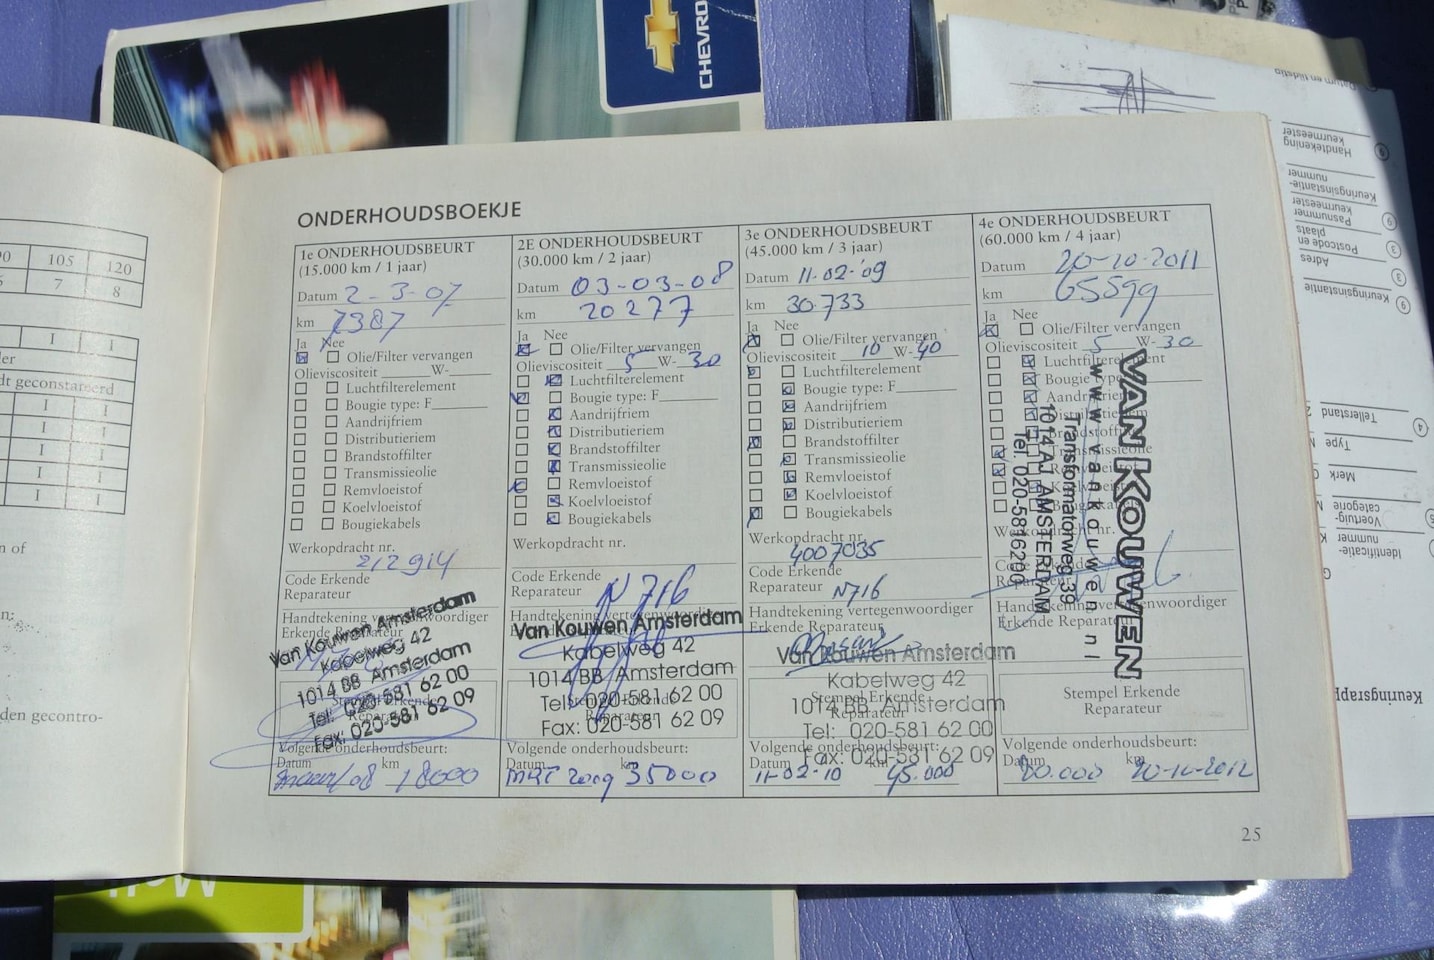 CHEVRO
ONDERHOUDSBOEKJE
1e ONDERHOUDSBEURT
(15.000 km / 1 jaar)
Datum 2-3-07
km 7387
Ja Nee
Olie/Filter vervangen
Olieviscositeit W-
Luchtfilterelement
Bougie type: F
Aandrijfriem
Distributieriem
Brandstoffilter
Transmissieolie
Remvloeistof
Koelvloeistof
Bougiekabels
Werkopdracht nr.
212914
Code Erkende
Reparateur
Handtekening vertegenwoordiger
Erkende Reparateur
Van Kouwen Amsterdam
Kabelweg 42
1014 BB Amsterdam
Tel: 020-581 62 00
Fax: 020-581 62 09
Volgende onderhoudsbeurt:
Datum km
maart 08 18000
2E ONDERHOUDSBEURT
(30.000 km / 2 jaar)
Datum 03-03-08
km 20277
Ja Nee
Olie/Filter vervangen
Olieviscositeit 5 W- 30
Luchtfilterelement
Bougie type: F
Aandrijfriem
Distributieriem
Brandstoffilter
Transmissieolie
Remvloeistof
Koelvloeistof
Bougiekabels
Werkopdracht nr.
Code Erkende
Reparateur N716
Handtekening vertegenwoordiger
Van Kouwen Amsterdam
Kabelweg 42
1014 BB Amsterdam
Tel: 020-581 62 00
Fax: 020-581 62 09
Volgende onderhoudsbeurt:
Datum km
MRT 2009 35000
3e ONDERHOUDSBEURT
(45.000 km / 3 jaar)
Datum 11-02-'09
km 30.733
Ja Nee
Olie/Filter vervangen
Olieviscositeit 10 W-40
Luchtfilterelement
Bougie type: F
Aandrijfriem
Distributieriem
Brandstoffilter
Transmissieolie
Remvloeistof
Koelvloeistof
Bougiekabels
Werkopdracht nr.
4007035
Code Erkende
Reparateur N716
Handtekening vertegenwoordiger
Erkende Reparateur
Van Kouwen Amsterdam
Kabelweg 42
Stempel Erkende
Reparateur
1014 BB Amsterdam
Tel: 020-581 62 00
Fax: 020-581 62 09
Volgende onderhoudsbeurt:
Datum km
11-02-10 45.000
4e ONDERHOUDSBEURT
(60.000 km / 4 jaar)
Datum 20-10-2011
km 65599
Ja Nee
Olie/Filter vervangen
Olieviscositeit 5 W-30
Luchtfilterelement
Bougie type
VAN KOUWEN
www.vankouwen.nl
Transformatorweg 39
1014 AJ AMSTERDAM
Tel. 020-5816200
Handtekening vertegenwoordiger
Erkende Reparateur
Stempel Erkende
Reparateur
Volgende onderhoudsbeurt:
Datum km
80.000 20-10-2012
25
105 120
7 8
I I
I I
I I
I I
I I
I I
den gecontro-
Datum en tijdstip
Handtekening
keurmeester
Keuringsinstantie-
nummer
Pasnummer
keurmeester
Postcode en
plaats
Adres
Keuringsinstantie
Tellerstand
Type
Merk
Voertuig-
categorie
Identificatie-
nummer
Keuringsrapp